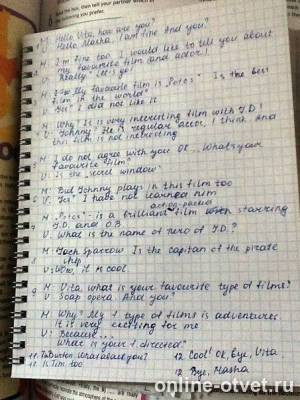 the box, then tell your partner which of
you prefer.
M: Hello, Vita, how are you?
V: Hello, Masha. I am fine. And you?
M: I'm fine too. I would like to tell you about
my favourite film and actor!
V: Really? Let's go!
M: My favourite film is Is the best
film in the world"
V: I did not like it
M: Why? It is very interesting film with J.D!
V: Johnny? He is regular actor, I think. And
this film is not interesting
M: I do not agree with you. OK... What's your
favourite film?
V: is the secret window
M: But Johnny plays in this film too
V: I have not learned him
action-packed
M: is a brilliant film starring
J.D. and O.B.
V: What is the name of hero of J.D.?
M: Jack Sparrow. Is the capitan of the pirate
ship.
V: Wow, it is cool
M: Vita, what is your favourite type of films?
V: Soap opera. And you?
M: Why? My f. type of films is adventures.
It is very exciting for me
V: Because...
What is your f. director?
11. T. Burton. What about you?
11. V. Tim too.
12. Cool! Ok, Bye, Vita
12. Bye, Masha
online-otvet.ru